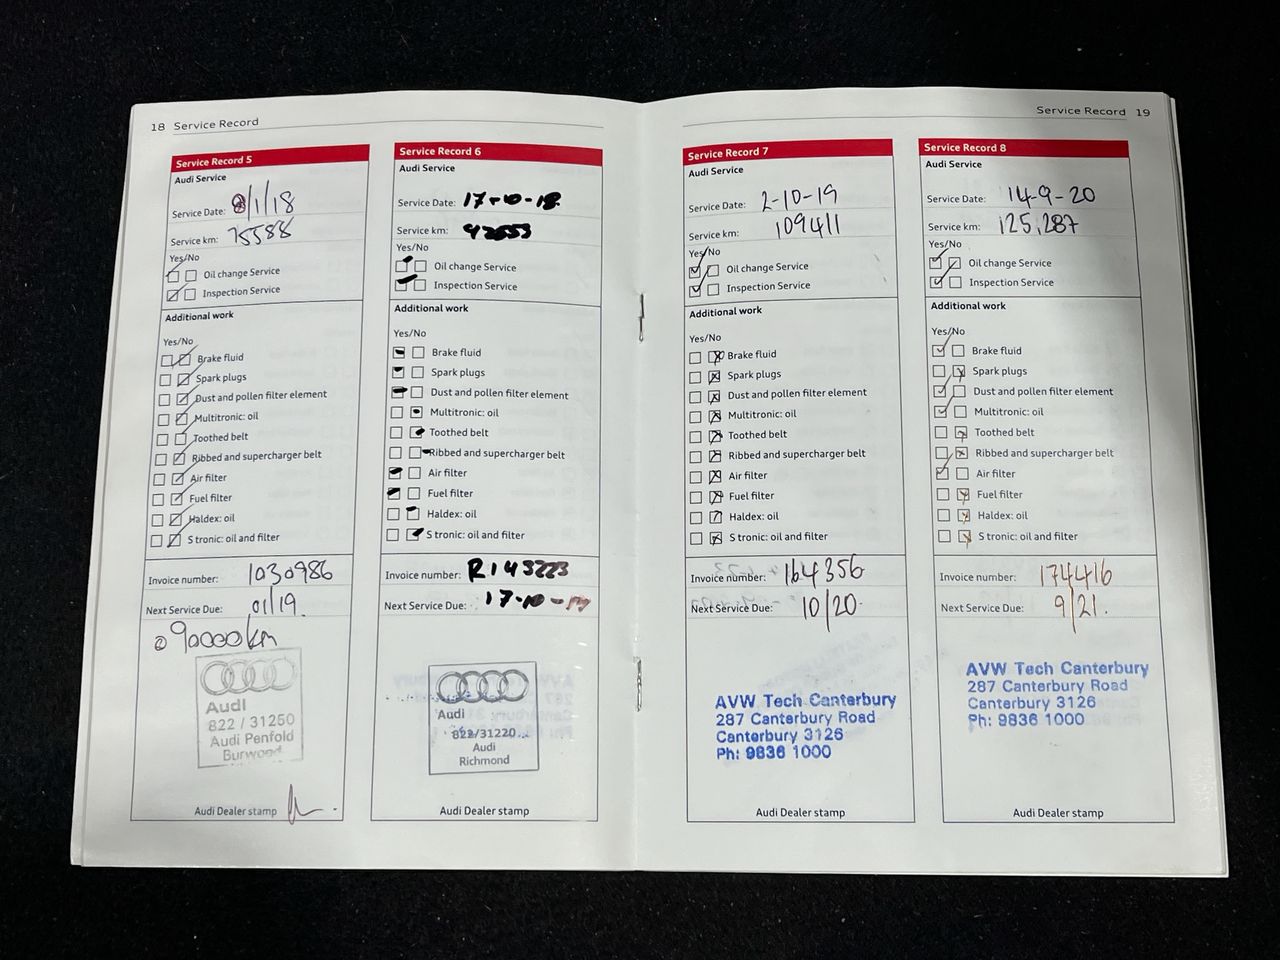 18 Service Record
Service Record 5
Audi Service
Service Date: 8/1/18
Service km: 75588
Yes/No
Oil change Service
Inspection Service
Additional work
Yes/No
Brake fluid
Spark plugs
Dust and pollen filter element
Multitronic: oil
Toothed belt
Ribbed and supercharger belt
Air filter
Fuel filter
Haldex: oil
S tronic: oil and filter
Invoice number: 1030986
Next Service Due: 01/19.
@ 90000km
Audi
822 / 31250
Audi Penfold
Burwood
Audi Dealer stamp
Service Record 6
Audi Service
Service Date: 17-10-18
Service km:
Yes/No
Oil change Service
Inspection Service
Additional work
Yes/No
Brake fluid
Spark plugs
Dust and pollen filter element
Multitronic: oil
Toothed belt
Ribbed and supercharger belt
Air filter
Fuel filter
Haldex: oil
S tronic: oil and filter
Invoice number: R143223
Next Service Due: 17-10-19
Audi
822/31220
Audi
Richmond
Audi Dealer stamp
Service Record 19
Service Record 7
Audi Service
Service Date: 2-10-19
Service km: 109411
Yes/No
Oil change Service
Inspection Service
Additional work
Yes/No
Brake fluid
Spark plugs
Dust and pollen filter element
Multitronic: oil
Toothed belt
Ribbed and supercharger belt
Air filter
Fuel filter
Haldex: oil
S tronic: oil and filter
Invoice number: 164356
Next Service Due: 10/20.
AVW Tech Canterbury
287 Canterbury Road
Canterbury 3126
Ph: 9836 1000
Audi Dealer stamp
Service Record 8
Audi Service
Service Date: 14-9-20
Service km: 125,287
Yes/No
Oil change Service
Inspection Service
Additional work
Yes/No
Brake fluid
Spark plugs
Dust and pollen filter element
Multitronic: oil
Toothed belt
Ribbed and supercharger belt
Air filter
Fuel filter
Haldex: oil
S tronic: oil and filter
Invoice number: 174416
Next Service Due: 9/21.
AVW Tech Canterbury
287 Canterbury Road
Canterbury 3126
Ph: 9836 1000
Audi Dealer stamp